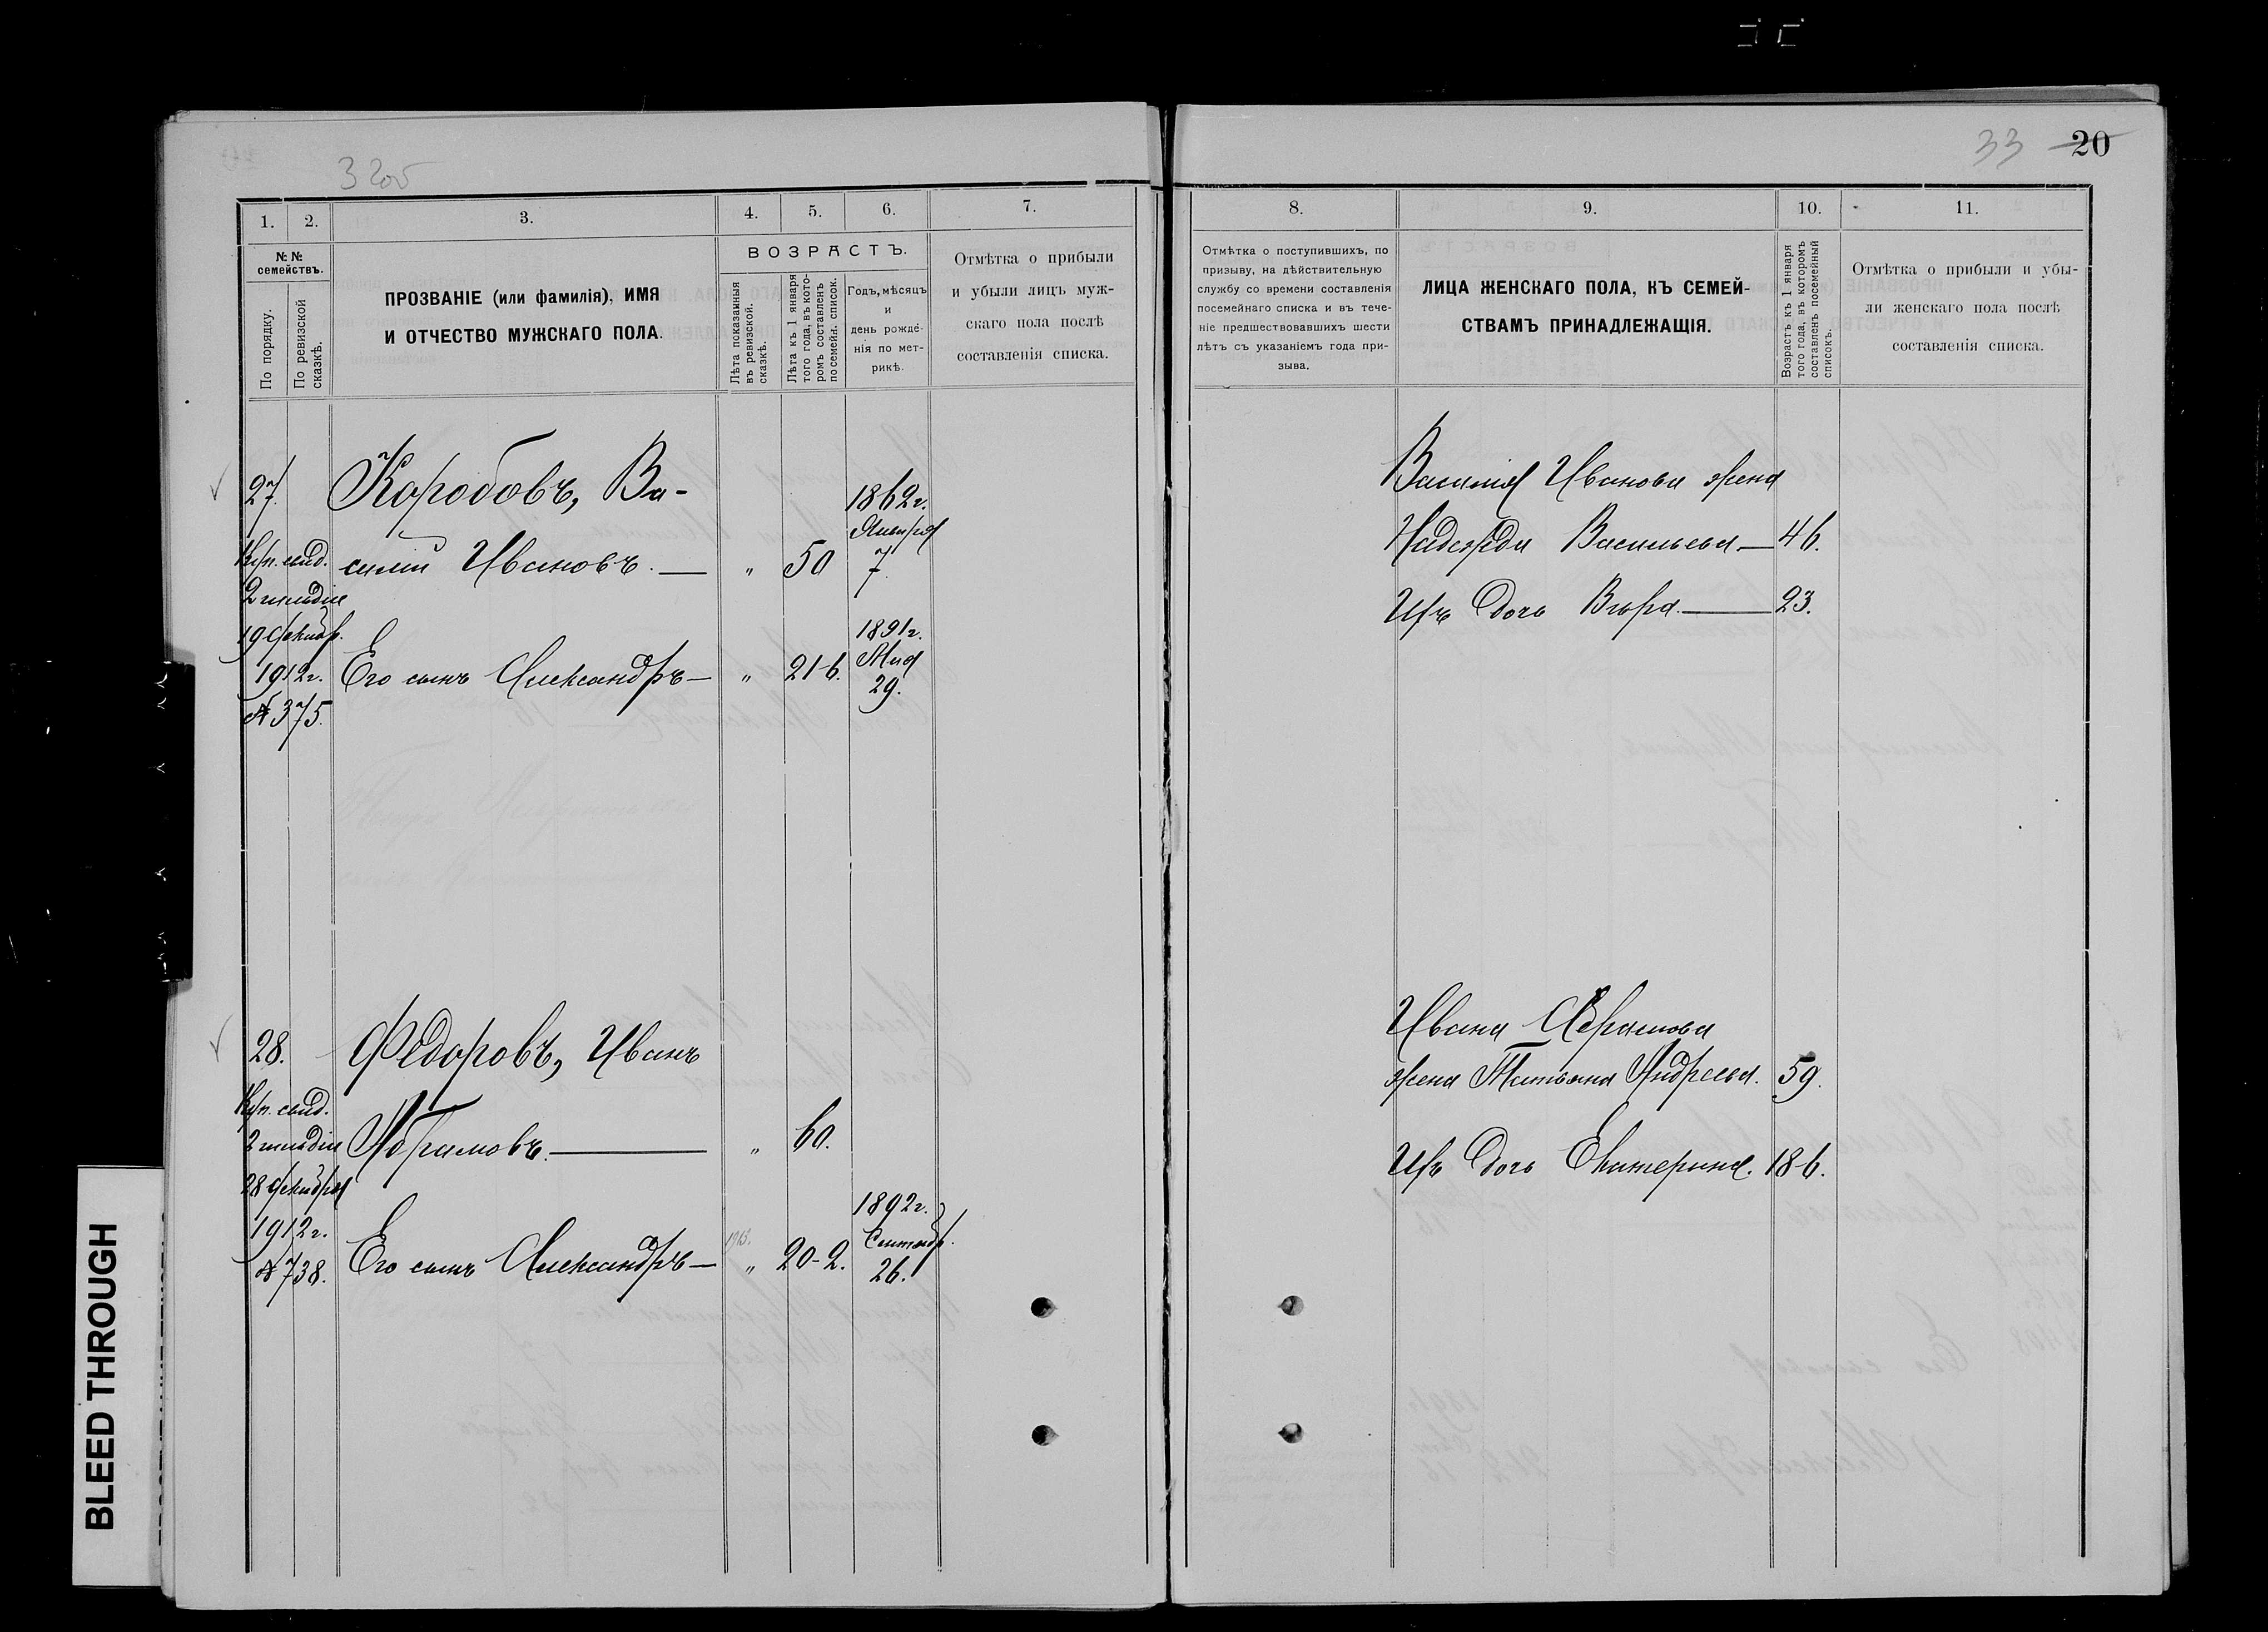 33 20
1. 2. 3. 4. 5. 6. 7.
№ №
семействъ.
По порядку.
По ревизской
сказкѣ.
ПРОЗВАНІЕ (или фамилія), ИМЯ
И ОТЧЕСТВО МУЖСКАГО ПОЛА.
ВОЗРАСТЪ.
Лѣта показанныя
въ ревизской.
сказкѣ.
Лѣта къ 1 января
того года, въ кото-
ромъ составленъ
посемейн. список.
Годъ, мѣсяцъ
и
день рождé-
нія по мет-
рикѣ.
Отмѣтка о прибыли
и убыли лицъ муж-
скаго пола послѣ
составленія списка.
27. Коробовъ, Ва-
1862 г.
Января
Куп. свид. силій Ивановъ. — „ 50 7.
2 гильдіи
19 Декабр.
1912 г.
№ 375.
1891 г.
Его сынъ Александръ — „ 21-6. Мая
29.
28. Федоровъ, Иванъ
Куп. свид.
2 гильдіи Абрамовъ. — „ 60.
28 Декабря
1912 г.
№ 738.
1892 г.
Его сынъ Александръ — „ 20-2. Сентябр.
26.
8. 9. 10. 11.
Отмѣтка о поступившихъ, по
призыву, на дѣйствительную
службу со времени составленія
посемейнаго списка и въ тече-
ніе предшествовавшихъ шести
лѣтъ съ указаніемъ года при-
зыва.
ЛИЦА ЖЕНСКАГО ПОЛА, КЪ СЕМЕЙ-
СТВАМЪ ПРИНАДЛЕЖАЩІЯ.
Возрастъ къ 1 января
того года, въ которомъ
составленъ посемейный
списокъ.
Отмѣтка о прибыли и убы-
ли женскаго пола послѣ
составленія списка.
Василія Иванова жена
Надежда Васильева — 46.
Ихъ дочь Вѣра. — 23.
Ивана Абрамова
жена Татьяна Андреева. 59.
Ихъ дочь Екатерина. 18-6.
BLEED THROUGH